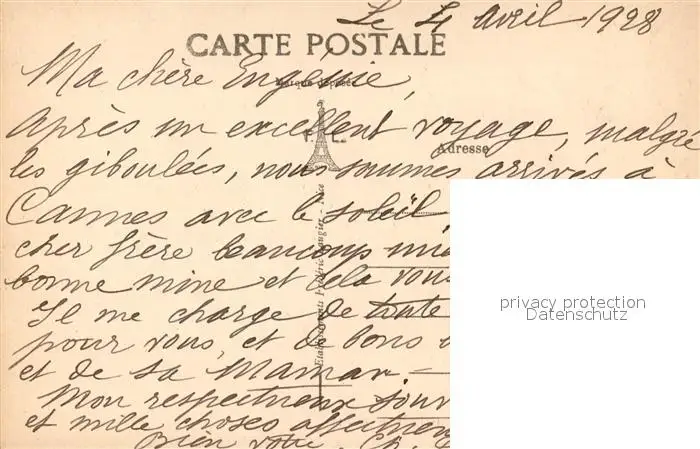 Le 4 avril 1928
CARTE POSTALE
Ma chère Eugénie,
Marque déposée
Après un excellent voyage, malgré
Adresse
les giboulées, nous sommes arrivés à
Cannes avec le soleil
cher frère beaucoup
bonne mine et cela vous
Il me charge de toute
pour vous, et de bons
et de sa Maman —
Mon respectueux
et mille choses
Bien votre, Ch.
Etablissements Frédéric Laugier - Nice
privacy protection
Datenschutz